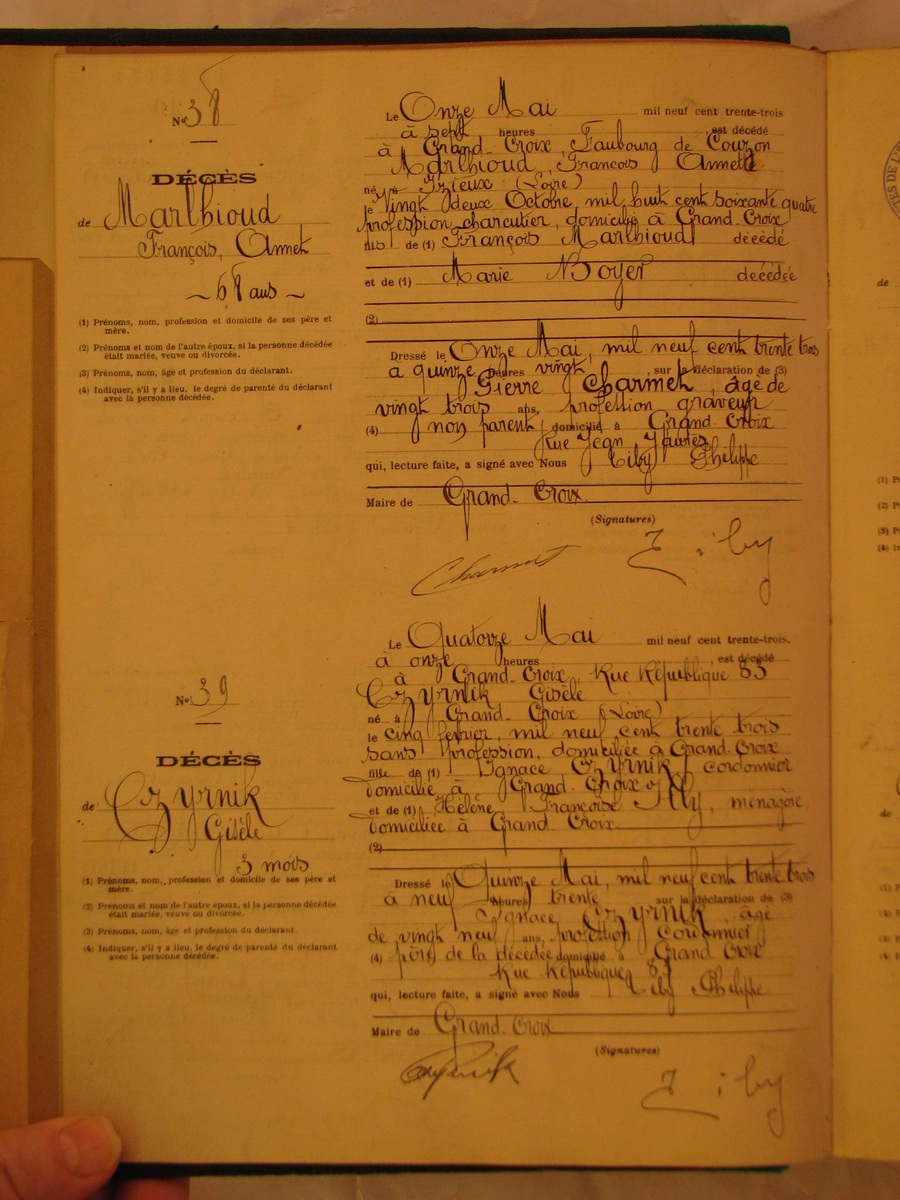 No 38
DÉCÈS
de Marlhioud
François, Annet
68 ans
(1) Prénoms, nom, profession et domicile de ses père et
mère.
(2) Prénoms et nom de l'autre époux, si la personne décédée
était mariée, veuve ou divorcée.
(3) Prénoms, nom, âge et profession du déclarant.
(4) Indiquer, s'il y a lieu, le degré de parenté du déclarant
avec la personne décédée.
Le Onze Mai mil neuf cent trente-trois
à sept heures est décédé
à Grand-Croix, Faubourg de Couzon
Marlhioud, François Annet
né à Izieux (Loire)
le vingt deux Octobre, mil huit cent soixante quatre
profession charcutier, domicilié à Grand-Croix
fils de (1) François Marlhioud décédé
et de (1) Marie Boyer décédée
(2)
Dressé le Onze Mai, mil neuf cent trente trois
à quinze heures vingt, sur la déclaration de (3)
Pierre Charmet, âgé de
vingt trois ans, profession graveur
(4) non parent, domicilié à Grand-Croix
Rue Jean Jaurès
qui, lecture faite, a signé avec Nous Ziby Philippe
Maire de Grand-Croix
(Signatures)
Charmet Ziby
No 39
DÉCÈS
de Czyrnik
Gisèle
3 mois
(1) Prénoms, nom, profession et domicile de ses père et
mère.
(2) Prénoms et nom de l'autre époux, si la personne décédée
était mariée, veuve ou divorcée.
(3) Prénoms, nom, âge et profession du déclarant.
(4) Indiquer, s'il y a lieu, le degré de parenté du déclarant
avec la personne décédée.
Le Quatorze Mai mil neuf cent trente-trois.
à onze heures, est décédé
à Grand-Croix, Rue République 83
Czyrnik Gisèle
né à Grand-Croix (Loire)
le cinq février, mil neuf cent trente trois
sans profession, domiciliée à Grand-Croix
fille de (1) Ignace Czyrnik, cordonnier
domicilié à Grand-Croix
et de (1) Hélène Françoise, ménagère,
domiciliée à Grand-Croix
(2)
Dressé le Quinze Mai, mil neuf cent trente trois
à neuf heures trente sur la déclaration de (3)
Ignace Czyrnik, âgé
de vingt neuf ans, profession cordonnier
(4) père de la décédée domicilié à Grand-Croix
Rue République 83
qui, lecture faite, a signé avec Nous Ziby Philippe
Maire de Grand-Croix
(Signatures)
Czyrnik Ziby